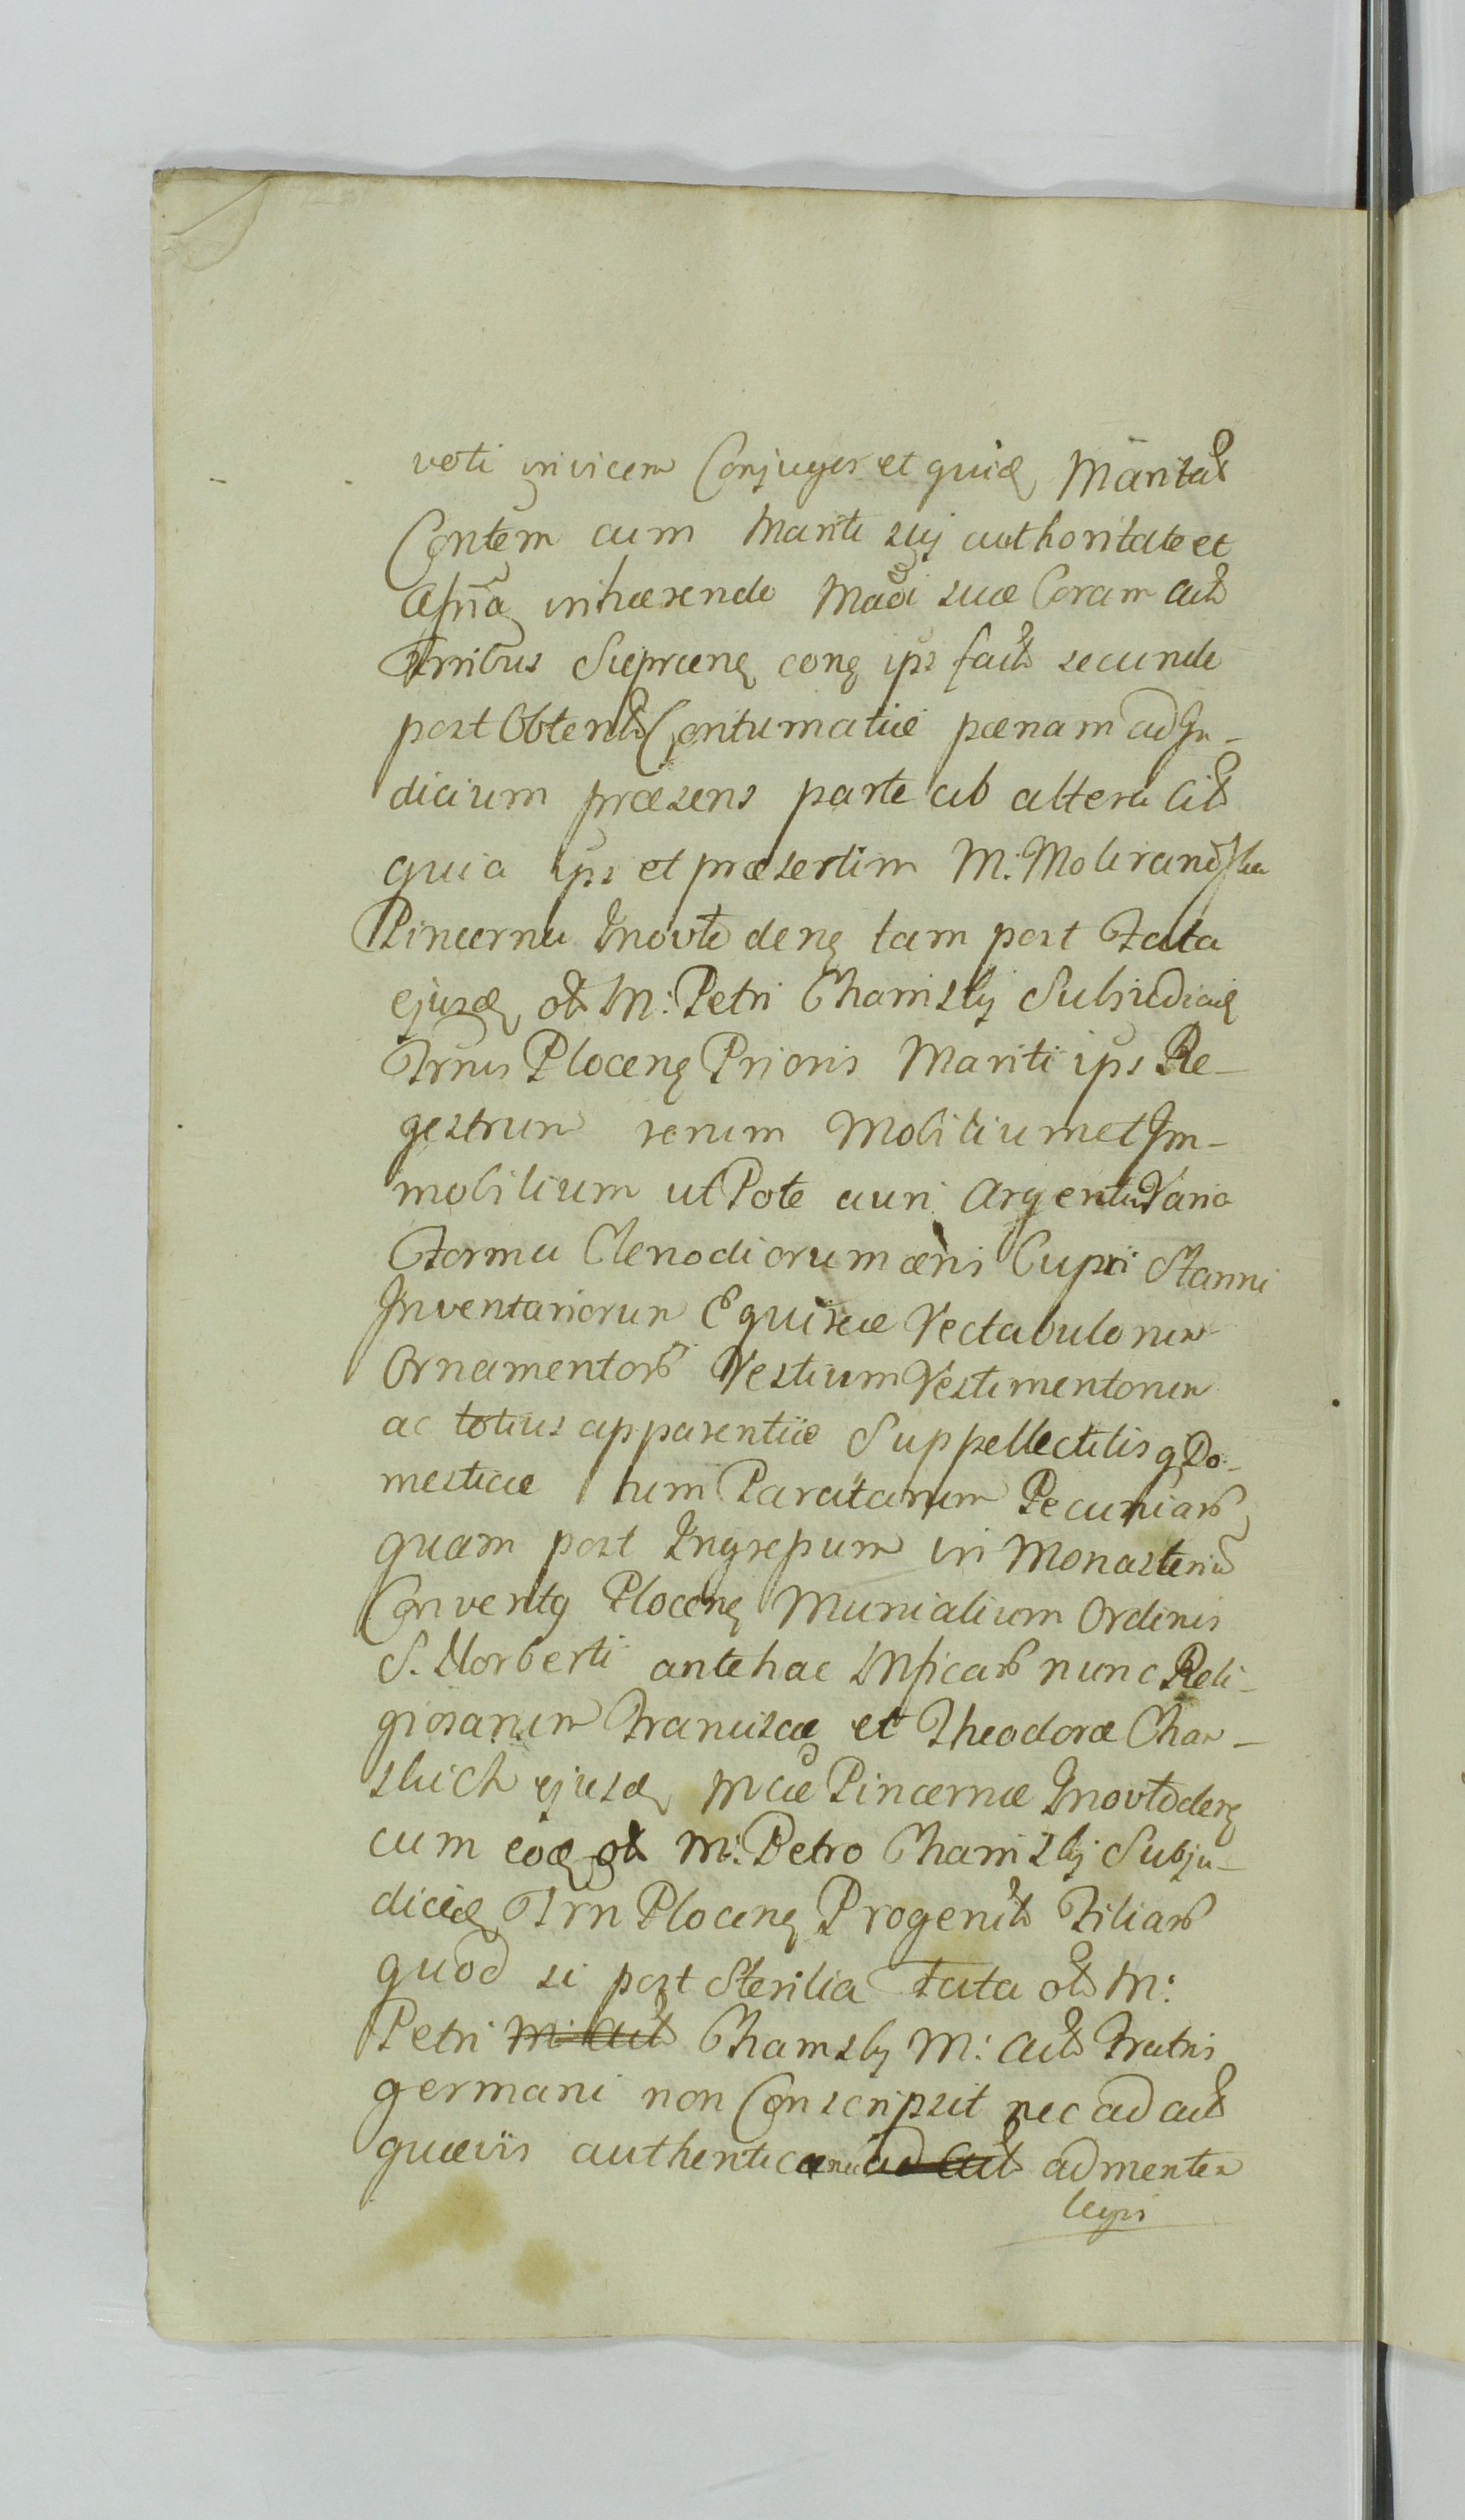 voti invicem Conjuges et quidē Marital
Consten cum Mariti sui authoritate et
Assña inhærendo Mãdi suæ Coram actis
Trribus Sierpcenẽ conẽ ips factæ secundo
post Obtentã Contumatiæ pænam ad Ju-
dicium præsens parte ab altera Cit
quia ips et præsertim M. Mokranowska
Pincerna Inovlodenẽ tam post Fata
ejusd ol M: Petri Chamsky Subjudicis
Trrus Plocenẽ Prioris Mariti ips Re-
gestrum rerum Mobilium et Im-
mobilium utPote auri Argenti Varia
Forma Clenodiorum æris Cupri Stanni
Inventariorum Equireæ Vectabulorum
Ornamentor Vestium Vestimentorum
ac totius apparentiæ Suppellectilisq Do-
mesticæ tum Paratarum Pecuniar
quam post Ingressum in Monasteriũ
Conventq Plocenẽ Munialium Ordinis
S. Norberti antehac Mficar nunc Reli-
giosarum Franciscæ et Theodoræ Cham-
skich ejusd Mcæ Pincernæ Inovlodenẽ
cum eod ol M: Petro Chamsky Subju-
dice Trrn Plocenẽ Progenit Filiar
quod si post Sterilia Fata ol M:
Petri M: Act Chamsky M: Act Fratris
germani non Conscripsit nec ad acta
quævis authentica nec ad act ad mentem
legis